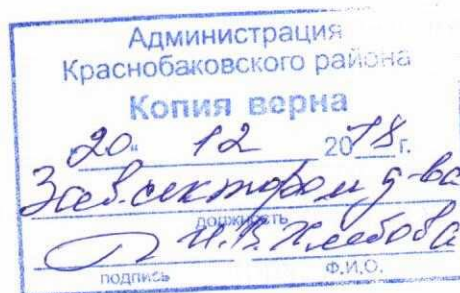 Администрация
Краснобаковского района
Копия верна
20" 12 2018 г.
Зав. сектором д-ва
должность
Н.В. Хлебова
подпись Ф.И.О.